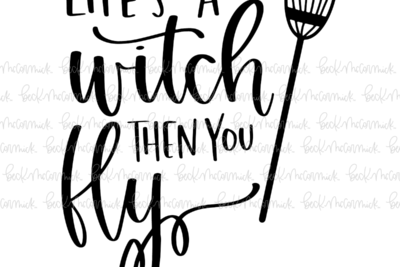 LIFE'S A
witch
THEN YOU
fly